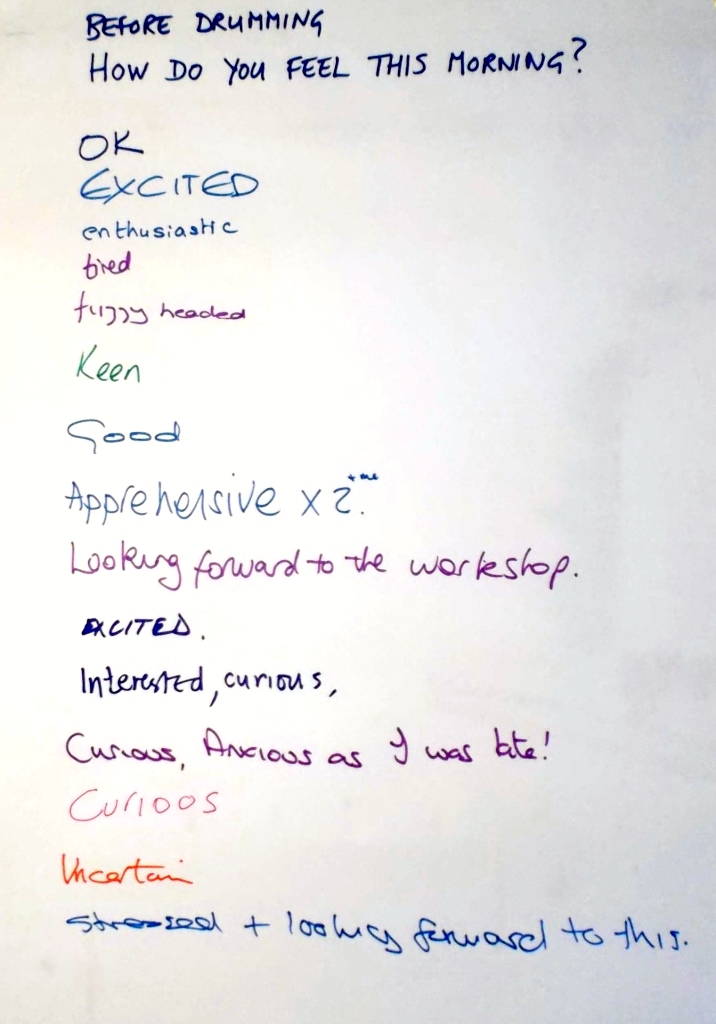 BEFORE DRUMMING
HOW DO YOU FEEL THIS MORNING?
OK
EXCITED
enthusiastic
tired
fuzzy headed
Keen
Good
Apprehensive x 2. + me
Looking forward to the workshop.
EXCITED.
Interested, curious,
Curious, Anxious as I was late!
Curioos
Uncertain
stressed + looking forward to this.